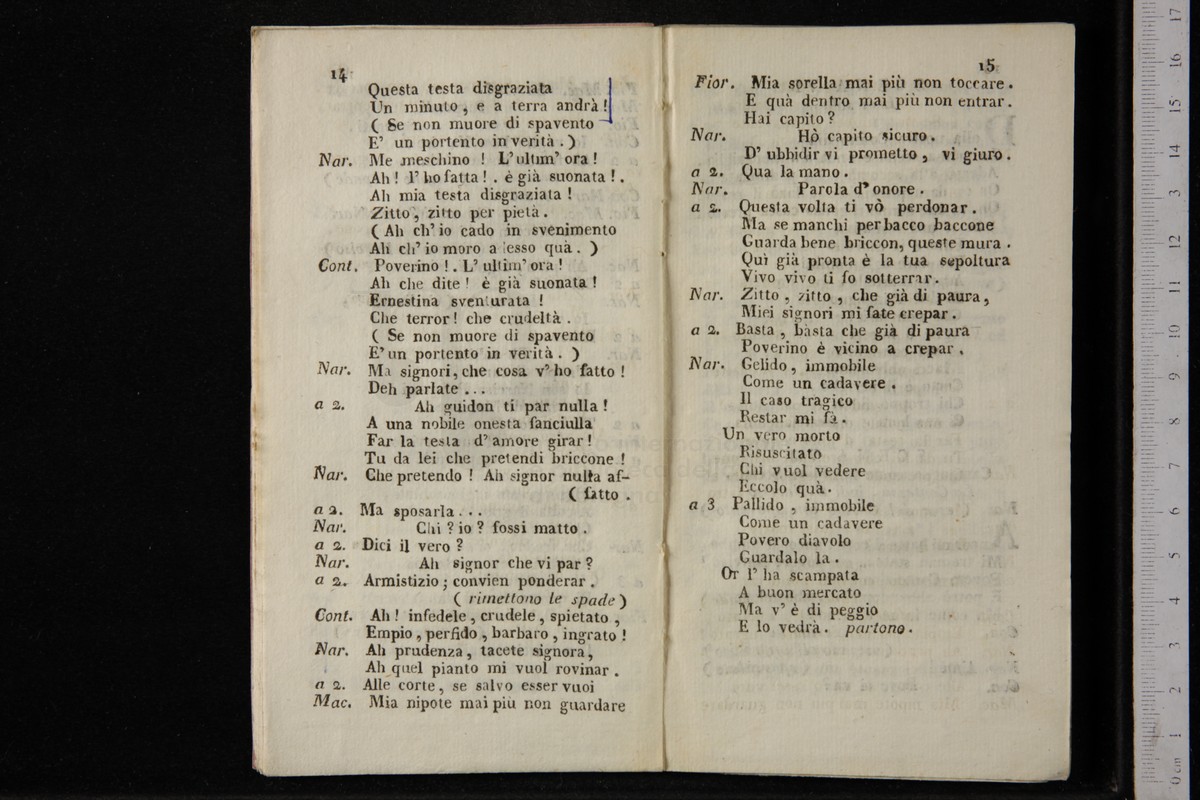 14
Questa testa disgraziata
Un minuto, e a terra andrà!
( Se non muore di spavento
E' un portento in verità. )
Nar. Me meschino! L'ultim' ora!
Ah! l' ho fatta!. è già suonata!.
Ah mia testa disgraziata!
Zitto, zitto per pietà.
( Ah ch' io cado in svenimento
Ah ch' io moro adesso quà. )
Cont. Poverino!. L' ultim' ora!
Ah che dite! è già suonata!
Ernestina sventurata!
Che terror! che crudeltà.
( Se non muore di spavento
E' un portento in verità. )
Nar. Ma signori, che cosa v' ho fatto!
Deh parlate...
a 2. Ah guidon ti par nulla!
A una nobile onesta fanciulla
Far la testa d' amore girar!
Tu da lei che pretendi briccone!
Nar. Che pretendo! Ah signor nulla af-
( fatto.
a 2. Ma sposarla...
Nar. Chi? io? fossi matto.
a 2. Dici il vero?
Nar. Ah signor che vi par?
a 2. Armistizio; convien ponderar.
( rimettono le spade )
Cont. Ah! infedele, crudele, spietato,
Empio, perfido, barbaro, ingrato!
Nar. Ah prudenza, tacete signora,
Ah quel pianto mi vuol rovinar.
a 2. Alle corte, se salvo esser vuoi
Mac. Mia nipote mai più non guardare
15
Fior. Mia sorella mai più non toccare.
E quà dentro mai più non entrar.
Hai capito?
Nar. Hò capito sicuro.
D' ubbidirvi prometto, vi giuro.
a 2. Qua la mano.
Nar. Parola d' onore.
a 2. Questa volta ti vò perdonar.
Ma se manchi per bacco baccone
Guarda bene briccon, queste mura.
Quì già pronta è la tua sepoltura
Vivo vivo ti fo sotterrar.
Nar. Zitto, zitto, che già di paura,
Miei signori mi fate crepar.
a 2. Basta, basta che già di paura
Poverino è vicino a crepar.
Nar. Gelido, immobile
Come un cadavere.
Il caso tragico
Restar mi fà.
Un vero morto
Risuscitato
Chi vuol vedere
Eccolo quà.
a 3 Pallido, immobile
Come un cadavere
Povero diavolo
Guardalo la.
Or l' ha scampata
A buon mercato
Ma v' è di peggio
E lo vedrà. partono.
0 cm 1 2 3 4 5 6 7 8 9 10 11 12 13 14 15 16 17